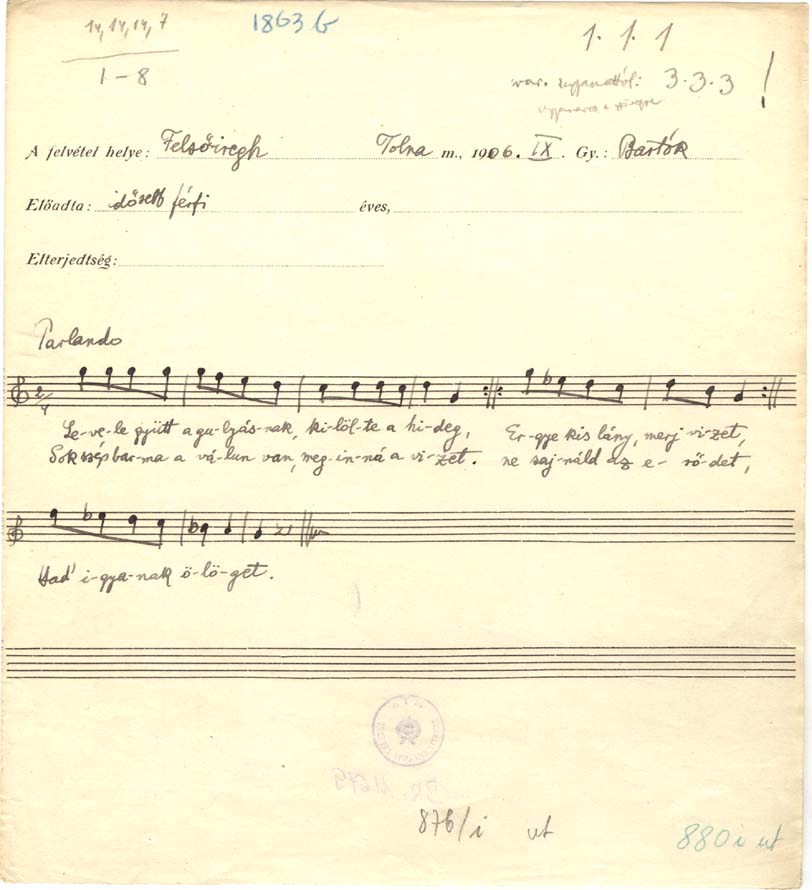 14, 14, 14, 7
1 – 8
1863 b
1. 1. 1
var. ugyanattól: 3.3.3 !
A felvétel helye: Felsőiregh Tolna m., 1906. IX. Gy.: Bartók
Előadta: idősebb férfi éves,
Elterjedtség:
Parlando
2/4
Le-ve-le gyütt a gu-lyás-nak, ki-löl-te a hi-deg, Er-gye kis lány, merj vi-zet,
Sok szép bar-ma a vá-lun van, meg-in-ná a vi-zet. ne saj-náld az e- rő-det,
Had' i-gya-nak ö-lö-get.
876/i ut
880 i ut